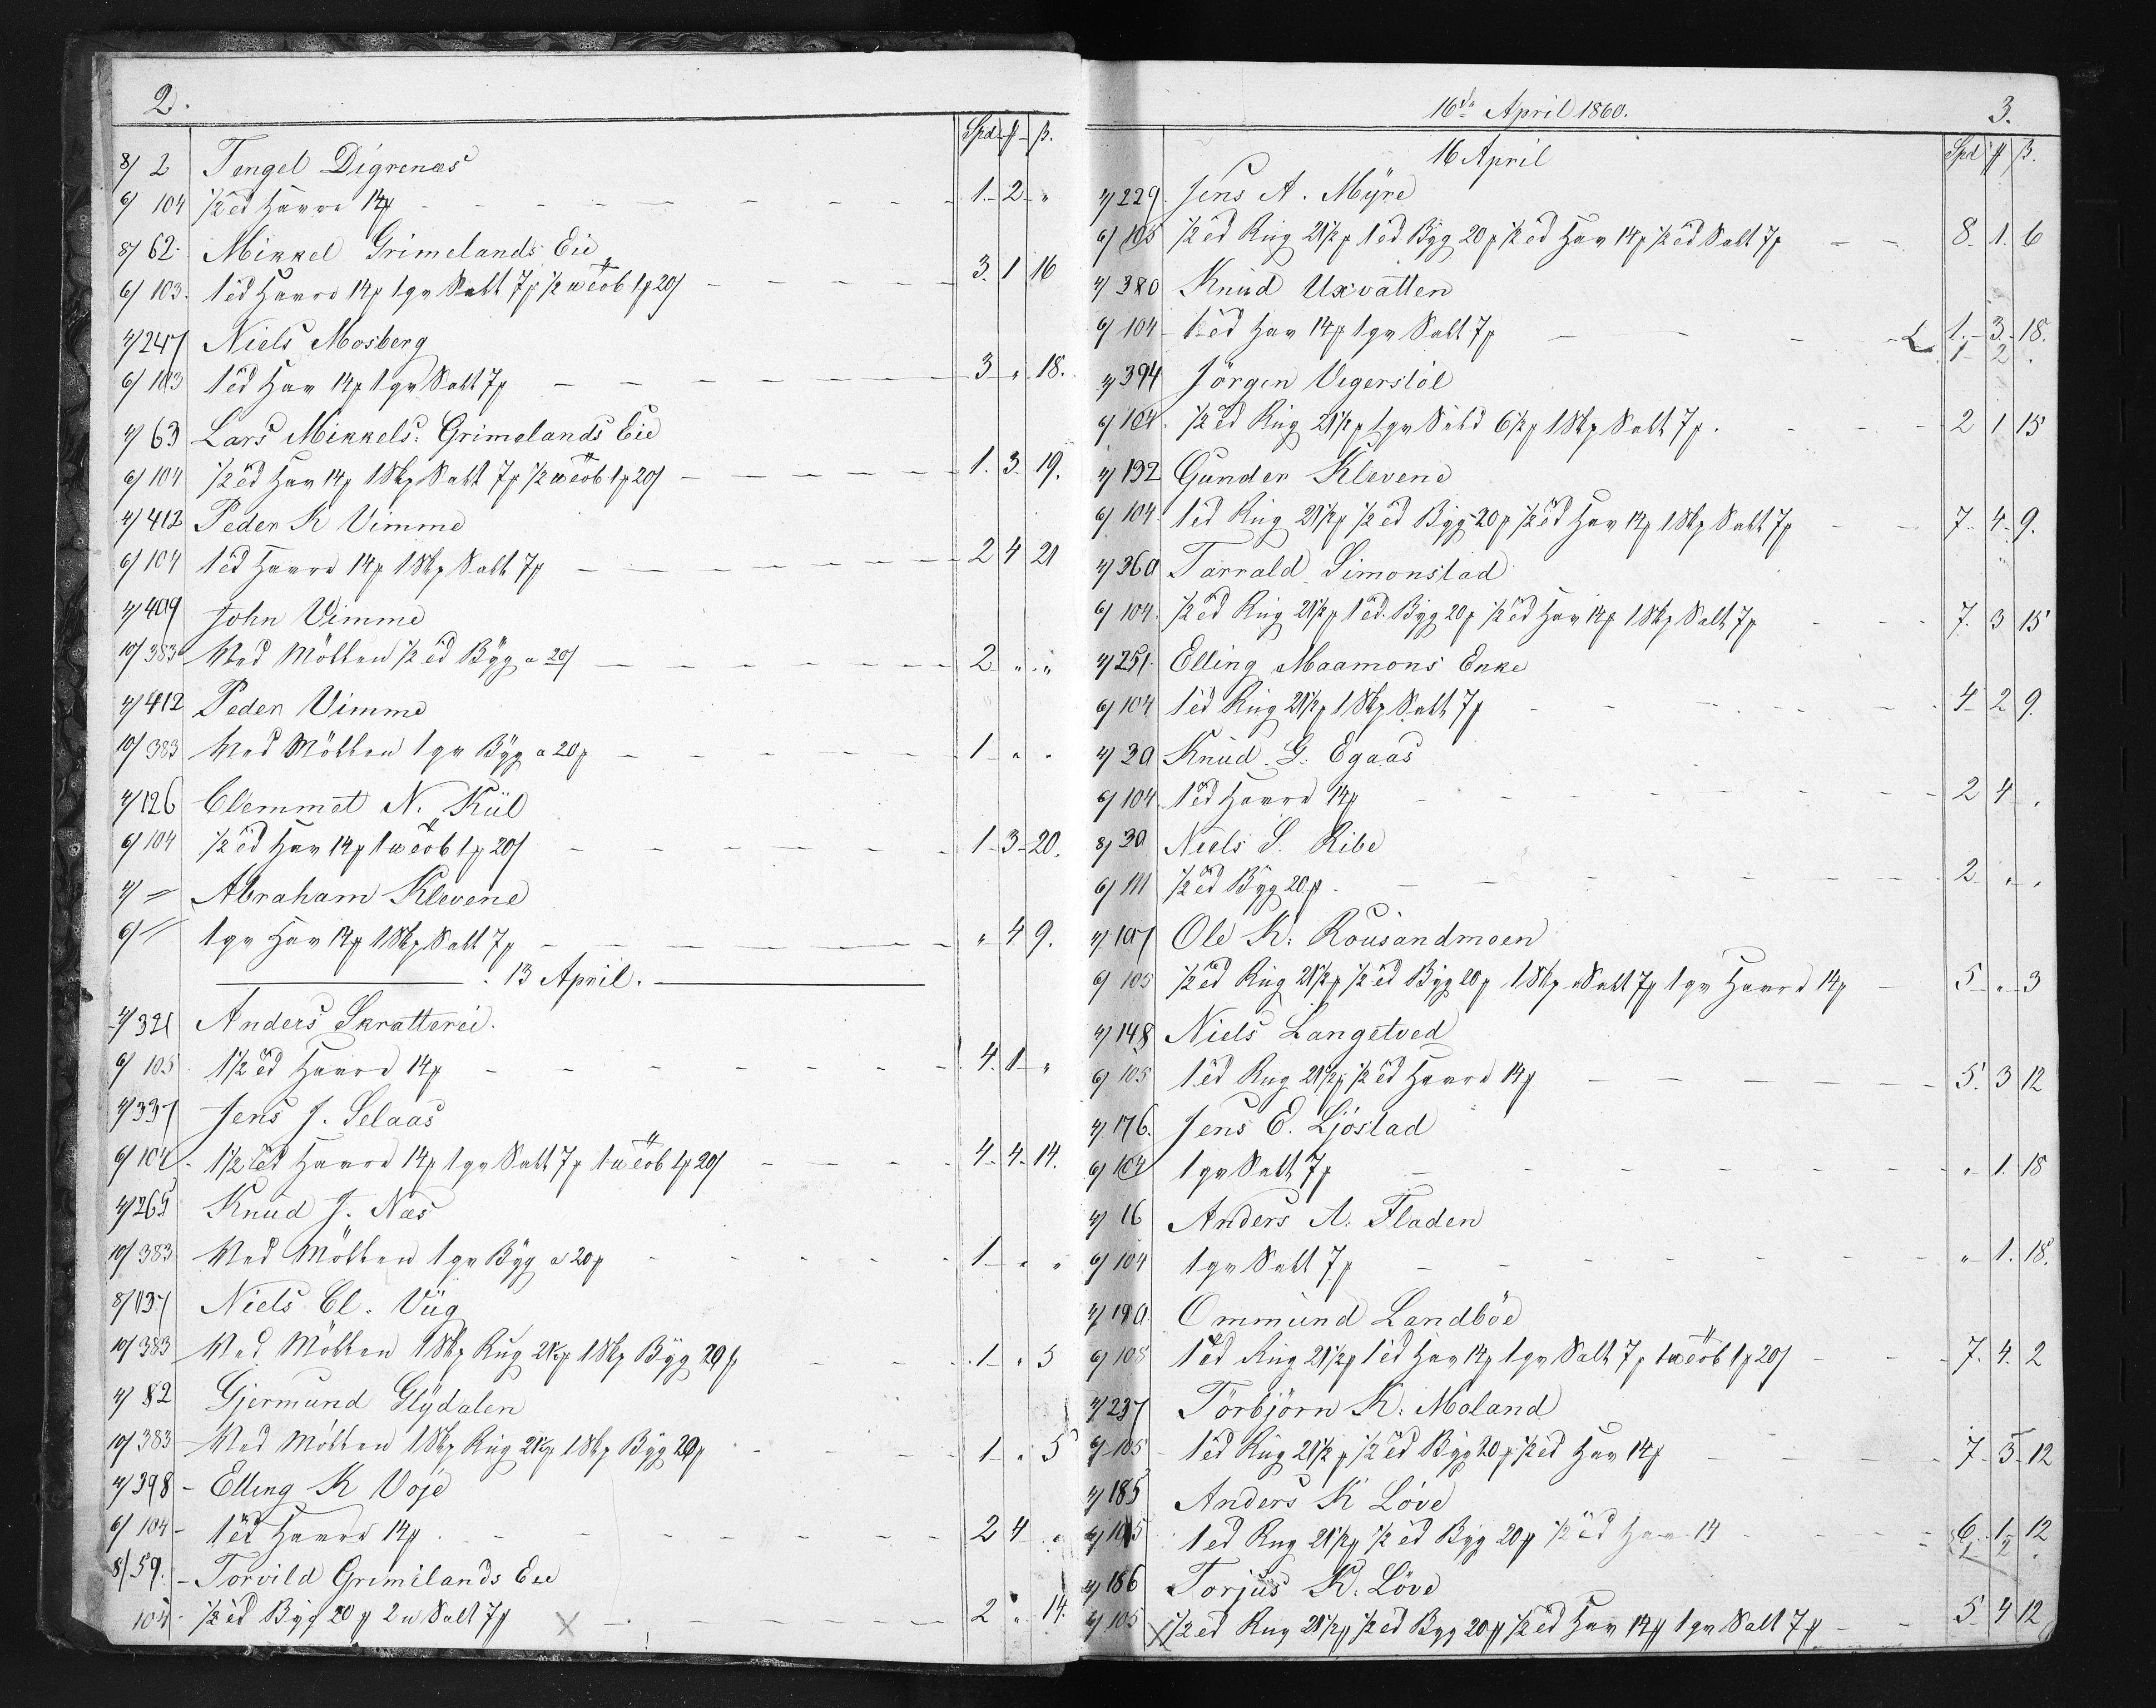 2.
Spd. ℳ ß.
8/ 2 Tengel Digrenæs
6/ 104 1/2 td Havre 14 1. 2 "
8/ 62 Mikkel Grimelands Eie
6/ 103. 1 td Havre 14 1 qr Salt 7 1/2 20/ 3. 1 16
4/ 247 Niels Mosberg
6/ 103 1 td Hav 14 1 qr Salt 7 3 " 18.
4/ 63 Lars Mikkels. Grimelands Eie
6/ 104 1/2 td Hav 14 1 Skp Salt 7 1/2 20/ 1. 3 19.
4/ 412 Peder K Vimme
6/ 104 1 td Havre 14 1 Skp Salt 7 2 4 21
4/ 409 John Vimme
10/ 383 Ved Möllen 1/2 td Byg a 20/ 2 " "
4/ 412 Peder Vimme
10/ 383 Ved Möllen 1 qr Byg a 20 1 " "
4/ 126 Clemmet N. Kül
6/ 104 1/2 td Hav 14 1 20/ 1 3 20.
4/ = Abraham Klevene
6/ = 1 qr Hav 14 1 Skp Salt 7 " 4 9.
13 April.
4/ 321 Anders Skratterei.
6/ 105 1 1/2 td Havre 14 4. 1 "
4/ 337 Jens J. Selaas
6/ 104 1 1/2 td Havre 14 1 qr Salt 7 1 20/ 4 4 14.
4/ 265 Knud J. Næs
10/ 383 Ved Möllen 1 qr Byg a 20 1 " "
8/ 137 Niels Cl. Viig
10/ 383 Ved Möllen 1 Skp Rug 21 1/2 1 Skp Byg 20 1 " 5
4/ 82 Gjermund Glydalen
10/ 383 Ved Möllen 1 Skp Rug 21 1/2 1 Skp Byg 20 1 " 5
4/ 398 Elling K Voje
6/ 104 1 td Havre 14 2 4 "
8/ 59. Torvild Grimelands Eie
104 1/2 td Byg 20 2 Salt 7 2 " 14.
16de April 1860. 3.
16 April Spd ℳ ß.
4/ 229. Jens A. Myre
6/ 105 1/2 td Rug 21 1/2 1 td Byg 20 1/2 td Hav 14 1/2 td Salt 7 8. 1. 6
4/ 380 Knud Uxvatten
6/ 104 1 td Hav 14 1 qr Salt 7 1. 3. 18.
1 2
4/ 394 Jörgen Vegerstöl
6/ 104. 1/2 td Rug 21 1/2 1 qr 6 1/2 1 Skp Salt 7. 2 1 15
4/ 132 Gunder Klevene
6/ 104 1 td Rug 21 1/2 1/2 td Byg 20 1/2 td Hav 14 1 Skp Salt 7 7. 4. 9.
4/ 360 Tarrald Simonstad
6/ 104. 1/2 td Rug 21 1/2 1 td. Byg 20 1/2 td Hav 14 1 Skp Salt 7 7. 3 15
4/ 251. Elling Maamons Enke
6/ 104 1 td Rug 21 1/2 1 Skp Salt 7 4 2 9.
4/ 20 Knud. G. Egaas
6/ 104 1 td Havre 14 2 4 .
8/ 30 Niels S. Ribe
6/ 111 1/2 td Byg 20 2 " "
4/ 107 Ole K. Rousandmoen
6/ 105 1/2 td Rug 21 1/2 1/2 td Byg 20 1 Skp Salt 7 1 qr Havre 14 5 " 3
4/ 148 Niels Langetved
6/ 105 1 td Rug 21 1/2 1/2 td Havre 14 5. 3 12
4/ 176. Jens E. Ljöstad
6/ 104 1 qr Salt 7 " 1. 18
4/ 16 Anders A. Fladen
6/ 104 1 qr Salt 7 " 1. 18.
4/ 190 Ommund Landböe
6/ 105 1 td Rug 21 1/2 1 td Hav 14 1 qr Salt 7 1 20/ 7. 4. 2
4/ 237 Törbjörn K. Moland
6/ 105 1 td Rug 21 1/2 1/2 td Byg 20 1/2 td Hav 14 7 3 12
4/ 185 Anders K Löve
6/ 105 1 td Rug 21 1/2 1/2 td Byg 20 1/2 td Hav 14 6. 1 12
1 2
4/ 186 Torjus K. Löve
6/ 105 1/2 td Rug 21 1/2 1/2 td Byg 20 1/2 td Hav 14 1 qr Salt 7 5 4 12